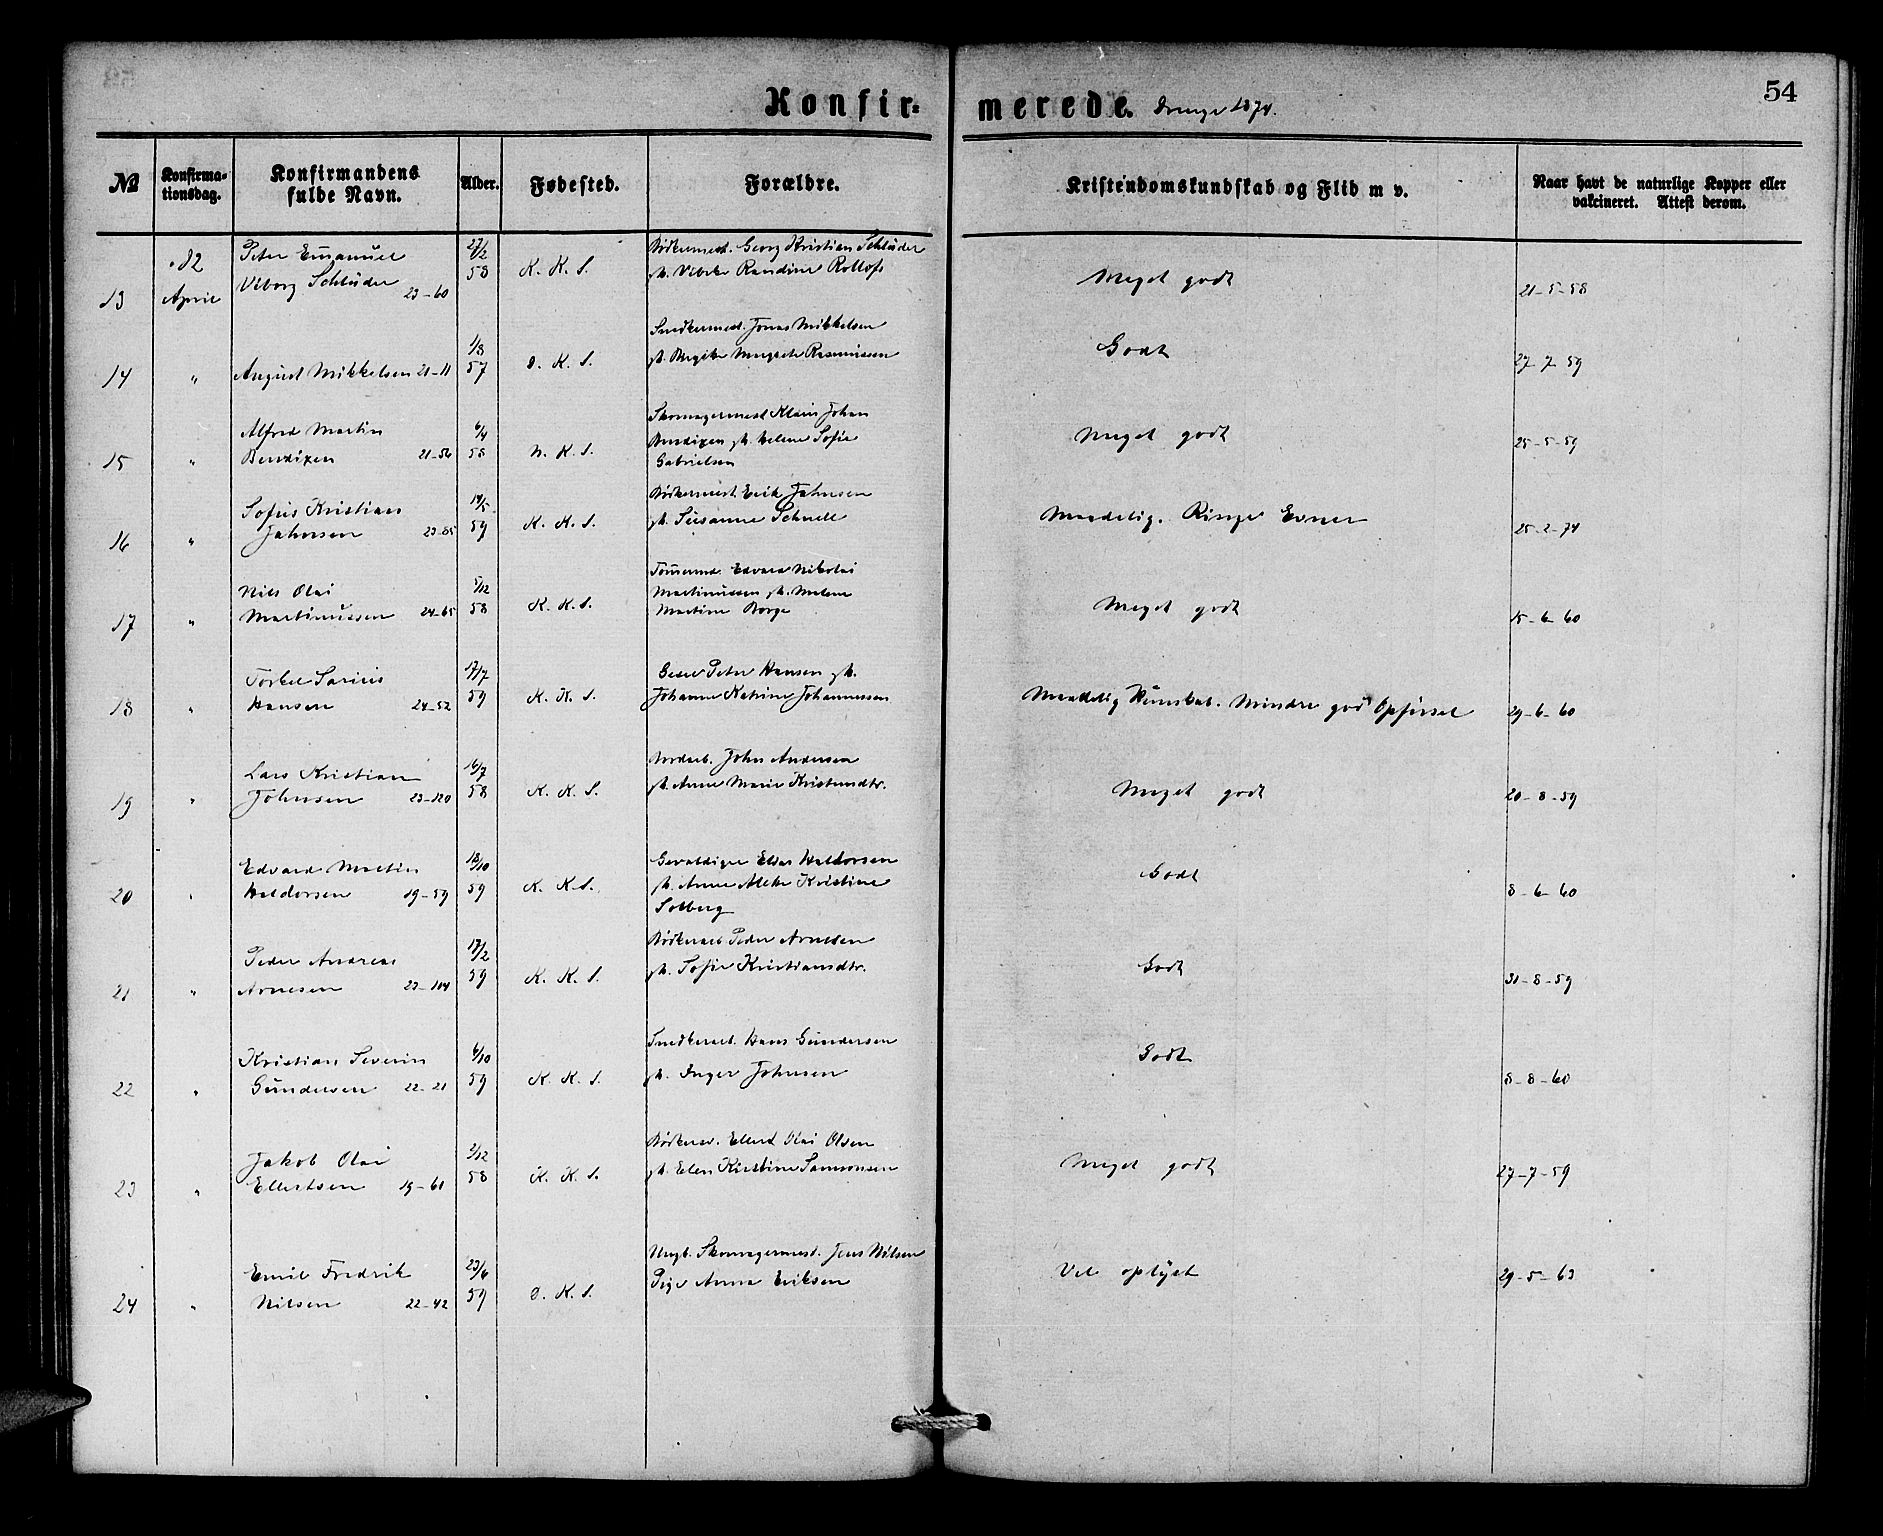 54
Konfirmerede. Drenge 1874.
№ Konfirmationsdag. Konfirmandens fulde Navn. Alder. Fødested. Forældre. Kristendomskundskab og Flid m v. Naar havt de naturlige Kopper eller vakcineret. Attest derom.
Peter Emanuel 27/2 Bødkermest. Georg Kristian Schlüder
12 Viborg Schlüder 58 K. K. S. Randine Rollofs Meget godt
13 April 23-60 21-5-58
Snedkermest. Jonas Mikkelsen
14 " August Mikkelsen 21-11 1/8 57 D. K. S. gh. Margrete Rasmussen Godt 27-7-59
Skomagermest Klaus Johan
Alfred Martin 6/4 Bendixen gh. Helene Sofie Meget godt
15 " Bendixen 21-56 58 N. K. S. Gabrielsen 25-5-59
Sofus Kristian 14/5 Bødkermest. Erik Jahnsen
16 " Jahnsen 23-85 59 K. K. S. gh. Susanne Schnell Maadelig. Ringe Evner 25-2-74
Nils Olai 5/12 Tømermd. Edvard Nikolai
Martinussen gh. Malene
17 " Martinussen 24-65 58 K. K. S. Martine Borge Meget godt 15-6-60
Torkel Sarius 17/7 Peter Hansen gh.
18 " Hansen 24-52 59 K. K. S. Johanne Katrine Johannessen Maadelig Kunskab. Mindre god Opførsel 29-6-60
Lars Kristian 16/7 John Andersen
19 " Johnsen 23-120 58 K. K. S. gh. Anne Marie Kristensdtr. Meget godt 20-8-59
Edvard Martin 18/10 Gevaldiger Elias Haldorsen
20 " Haldorsen 19-59 59 K. K. S. gh. Anne Alette Kristine Godt 8-6-60
Solberg
Peder Andreas 17/2 Bødkerarb Peder Arnesen
21 " Arnesen 23-104 59 K. K. S. gh. Sofie Kristiansdtr. Godt 31-8-59
Kristian Severin 6/10 Snedkerarb. Hans Gundersen
22 " Gundersen 22-21 59 K. K. S. gh. Inger Johnsen Godt 8-8-60
Jakob Olai 2/12 Bødkersv. Ellert Olai Olsen
23 " Ellertsen 19-61 58 K. K. S. gh. Elen Kirstine Samsonsen Meget godt 27-7-59
Emil Fredrik 23/6 Ungk. Skomagermest. Jens Nilsen
24 " Nilsen 22-42 59 D. K. S. Pige Anna Eriksen Vel oplyst 29-5-63